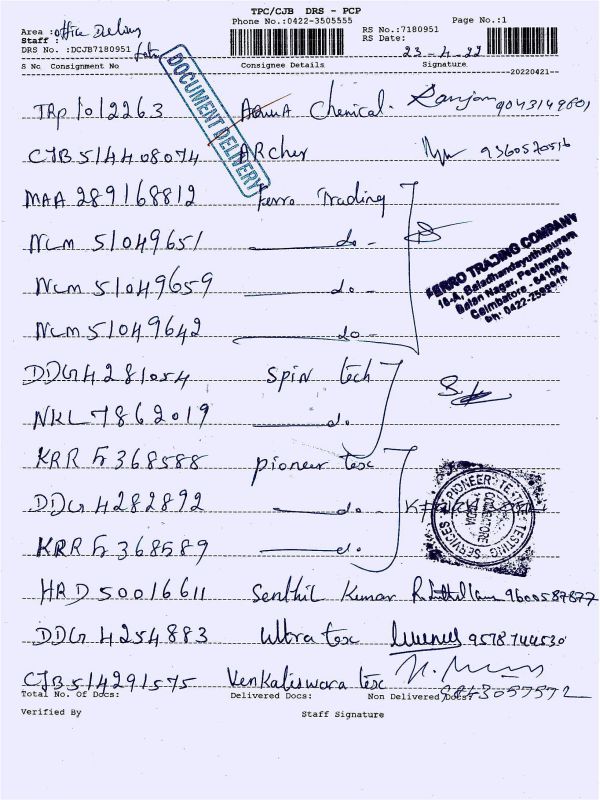 TPC/CJB DRS - PCP
Phone No.:0422-3505555
Page No.:1
Area : office Delivy
RS No.:7180951
Staff :
RS Date:
DRS No. :DCJB7180951
23-4-22
S No Consignment No Consignee Details Signature
20220421
DOCUMENT DELIVERY
TRP 1012263 Chemical. Ranjan 9043149601
CJB 514408074 ARcher 9360570516
MAA 289168812 Ferro Trading
NCM 51049651 do-
FERRO TRADING COMPANY
16-A, Baladhandayuthapuram
Balan Nagar, Peelamedu
Coimbatore - 641004
NCM 51049659 do-
NCM 51049642 do-
DDG 4281054 Spin tech
NKL 7862019 do.
KRR 5368588 pioneer tex
DDG 4282892 do.
PIONEER TESTING SERVICES
COIMBATORE
INDIA
KRR 5368589 d.
HRD 50016611 Senthil Kumar 9600587877
DDG 4254883 Ultra tex 9578744530
CJB 514291575 Venkateswara tex
9843057572
Total No. of Docs: Delivered Docs: Non Delivered Docs:
Verified By Staff Signature